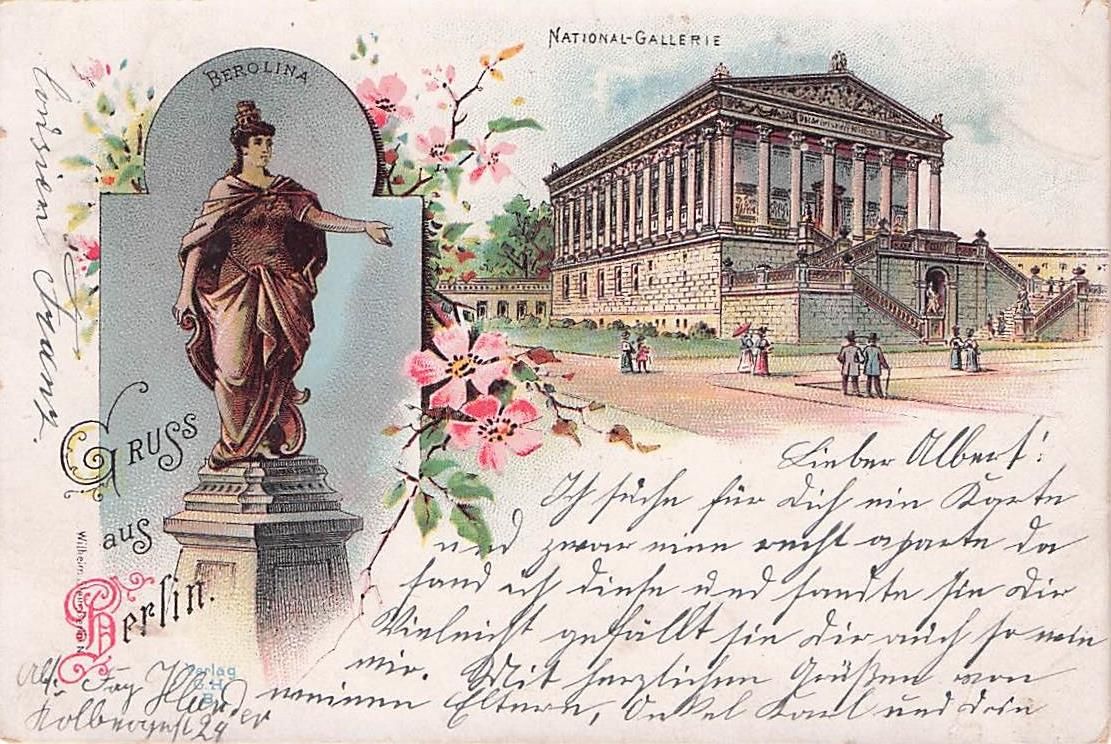 BEROLINA
NATIONAL-GALLERIE
GRUSS
aus
Berlin.
Lieber Albert!
Ich suche für Dich ein Karte
und zwar eine recht aparte da
fand ich diese und sandte sie Dir
Vielleicht gefällt sie Dir auch so wie
mir. Mit herzlichen Grüßen von
meinen Eltern, Onkel Karl und Dein
Cousin Franz.
Abs.
Verlag
Wilhelm